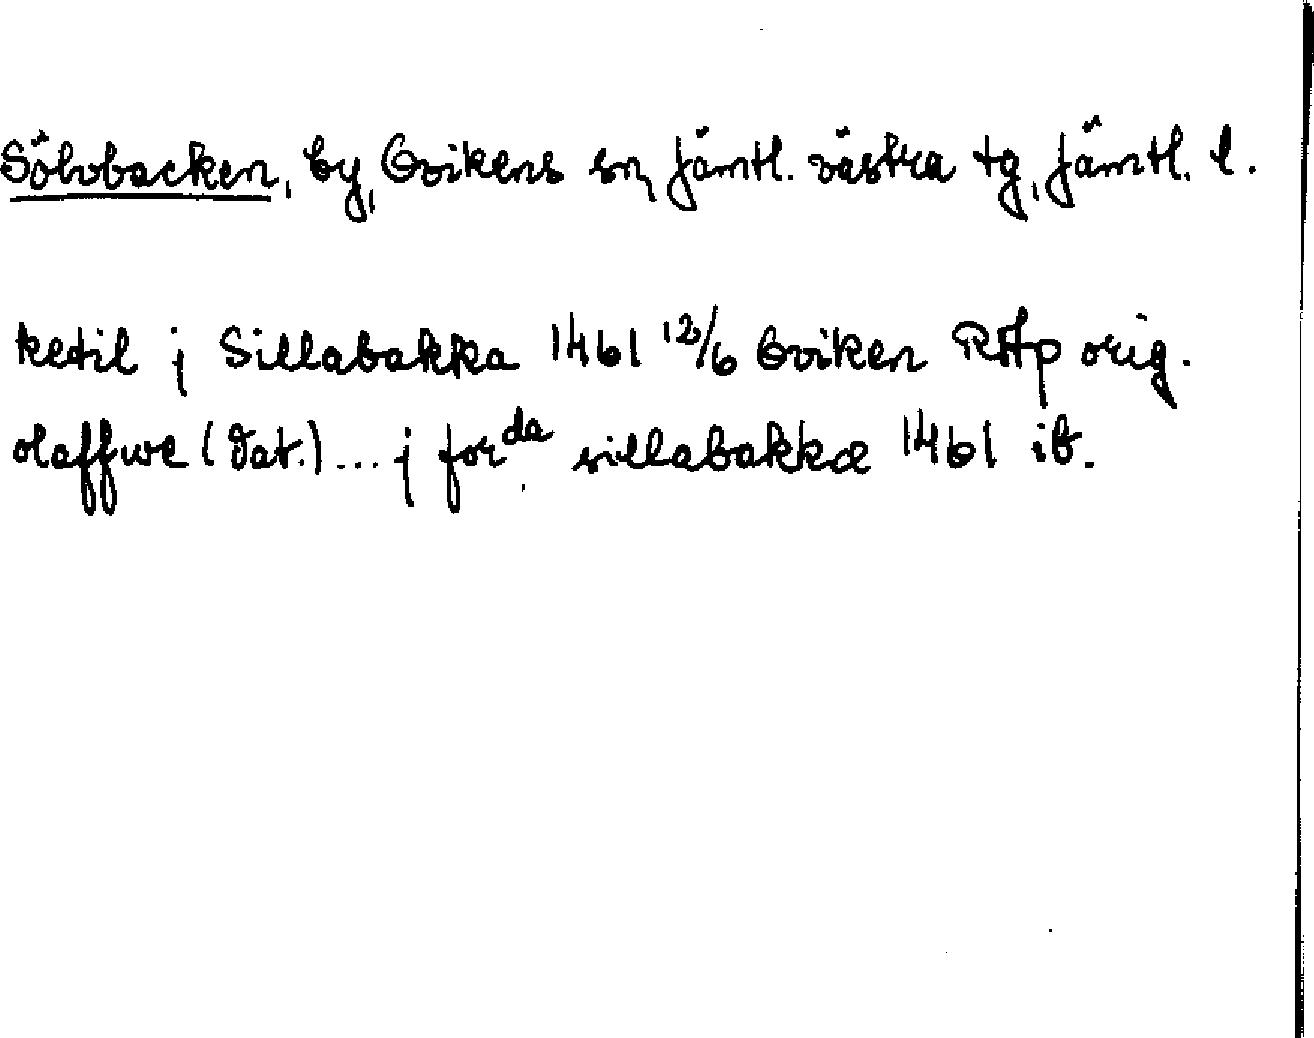 Sölvbacken, by, Ovikens sn, Jämtl. västra tg, Jämtl. l.
ketil j Sillabakka 1461 12/6 Oviken RAp orig.
olaffwe (dat.) ... j for da sillabakkæ 1461 ib.